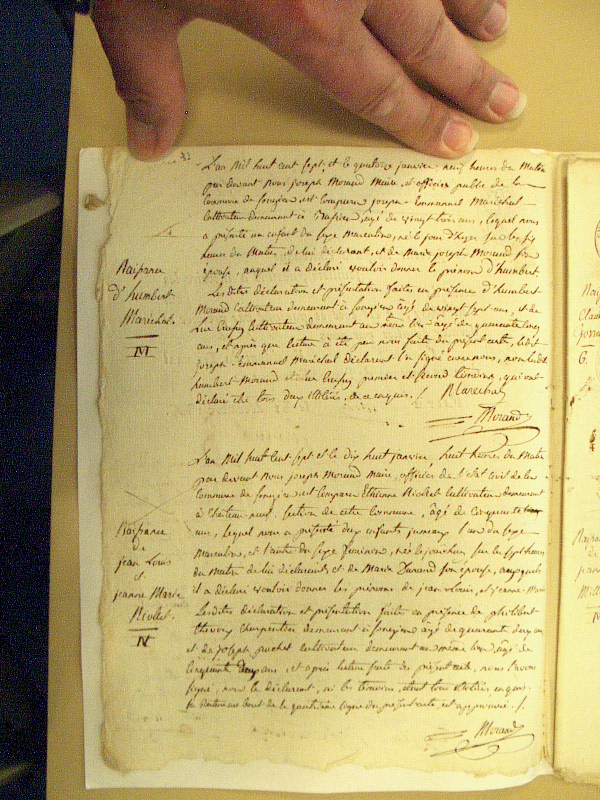 L'an Mil huit cent sept, et le quatorze janvier, neuf heures du Matin
par devant nous joseph Morand Maire, et officier public de la
Commune de songieu, est comparu joseph-Emmanuel Maréchal
cultivateur demeurant à âgé de vingt trois ans, lequel nous
a présenté un enfant du sexe Masculin, né le jour d'hyer sur les six
heures du Matin, de lui déclarant, et de Marie joseph Morand son
épouse, auquel il a déclaré vouloir donner le prénom d'humbert
Les dites déclaration et présentation faites en présence d'humbert
Morand cultivateur demeurant à songieu âgé de vingt sept ans, et de
cultivateur demeurant au même lieu âgé de quarante cinq
ans, et après que lecture a été par nous faite du présent acte, ledit
joseph-Emmanuel maréchal déclarant l'a signé avec nous, non ledit
humbert Morand et premier et second témoins, qui ont
déclaré être tous deux illitérés, de ce enquis. /. Marechal
Morand
Naissance
d'humbert
Maréchal.
IVI
L'an Mil huit cent sept et le dix huit janvier huit heures du Matin
par devant nous joseph Morand maire, officier de l'état civil de la
Commune de songieu, est comparu Etienne Nicolet cultivateur demeurant
à Chateau neuf, section de cette commune, âgé de cinquante
ans, lequel nous a présenté deux enfants jumeaux l'un du sexe
Masculin, et l'autre du sexe féminin, nés le jourd'huy sur les sept heures
du matin de lui déclarant et de Marie Durand son épouse, auxquels
il a déclaré vouloir donner les prénoms de jean Louis, et jeanne-Marie
Les dites déclaration et présentation faites en présence de
thevon charpentier demeurant à songieu âgé de quarante deux ans
et de joseph cultivateur demeurant au même lieu âgé de
cinquante ans, et après lecture faite du présent acte, nous l'avons
signé, non le déclarant, ni les témoins, étant tous illitérés enquis.
la au bout de la quatrième ligne du présent acte est approuvée. /.
Morand
Naissance
de
jean Louis
et
jeanne Marie
Nicollet.
IV